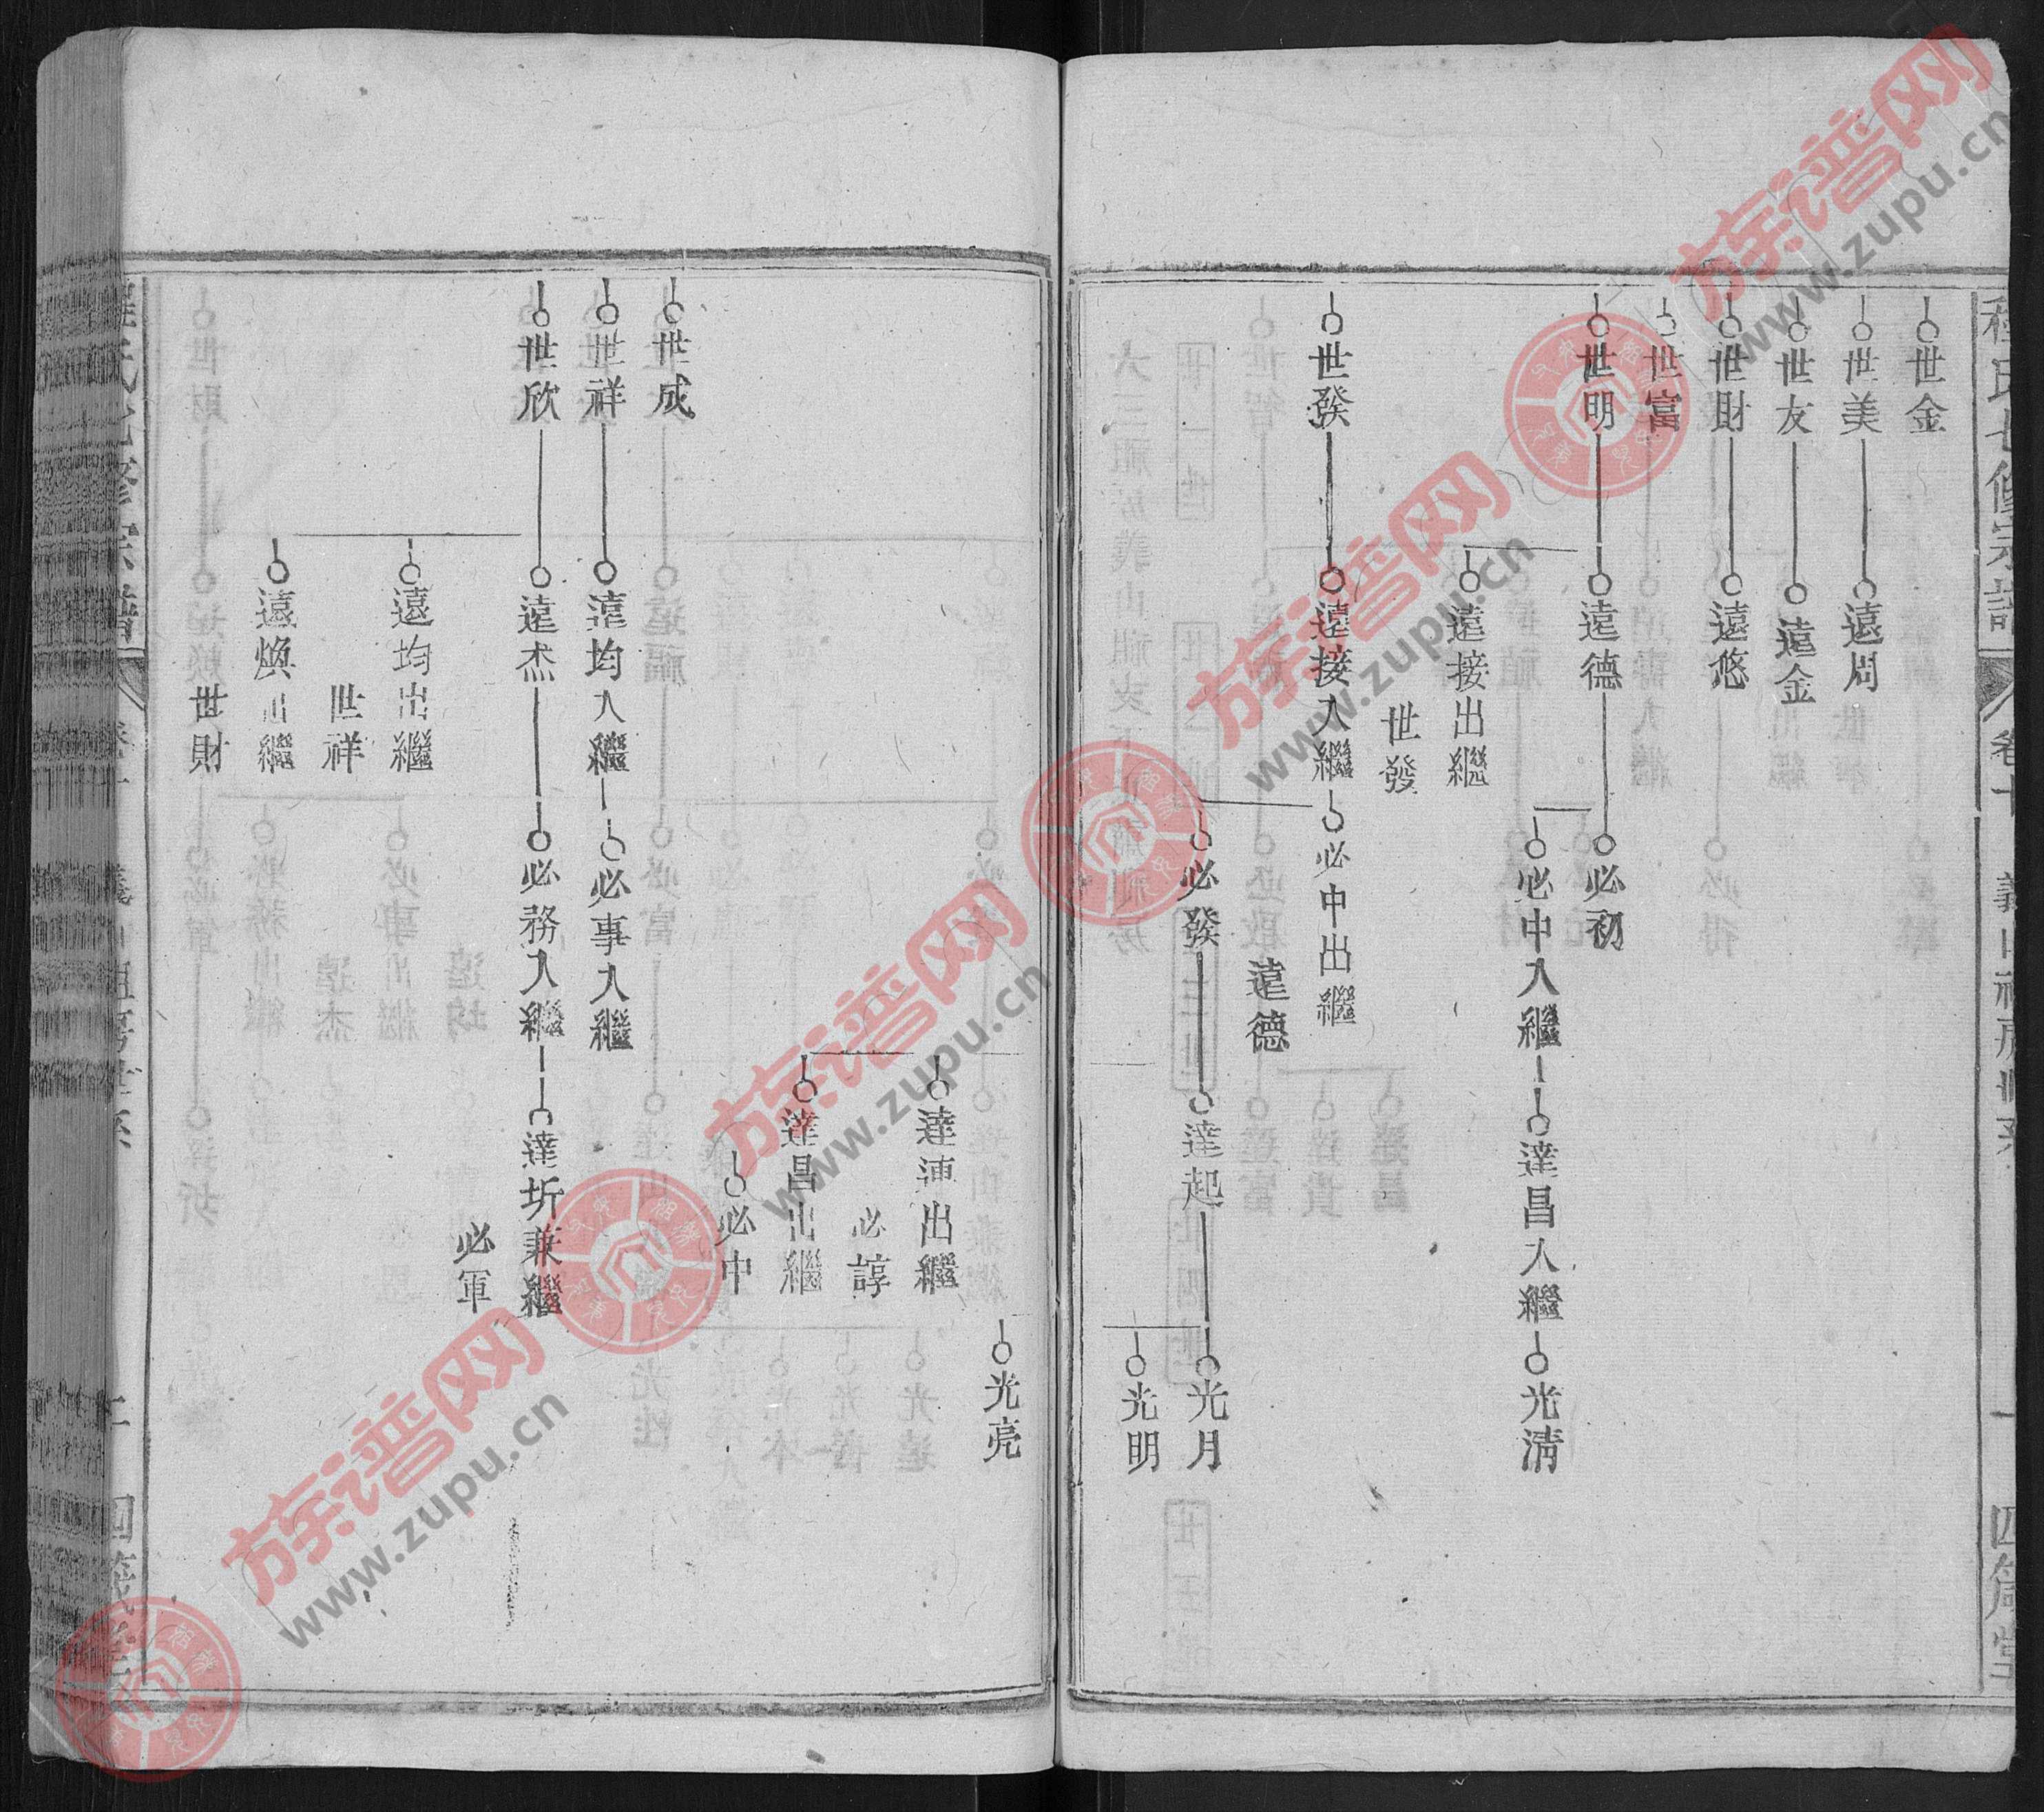 程氏七修宗譜
卷十
義山祖房世系
一
四箴堂
世金
世美
遠周
世友
遠金
世財
遠悠
世富
世明
遠德
必初
必中入繼
達昌入繼
光清
遠接出繼
世發
世發
遠接入繼
必中出繼
遠德
必發
達起
光月
光明
光亮
達連出繼
必諄
達昌出繼
必中
世成
世祥
遠均入繼
必事入繼
世欣
遠杰
必務入繼
達圻兼繼
必軍
遠均出繼
世祥
遠煥出繼
世財
族谱网
www.zupu.cn
族谱网
www.zupu.cn
族谱网
www.zupu.cn
族谱网
www.zupu.cn